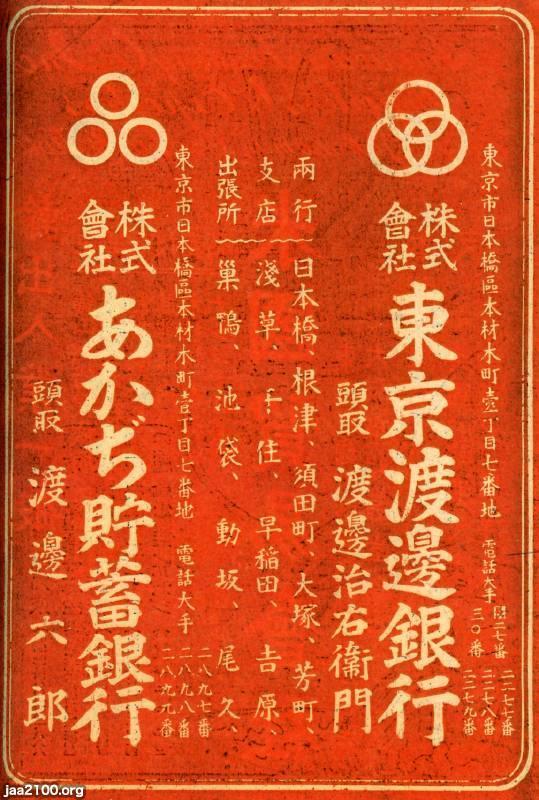 東京市日本橋區本材木町壹丁目七番地
電話大手
三〇番
二一七七番
二二七八番
二二七九番
株式會社
東京渡邊銀行
頭取 渡邊治右衞門
兩行支店 日本橋、根津、須田町、大塚、芳町、
淺草、千住、早稲田、吉原、
出張所 巢鴨、池袋、動坂、尾久、
東京市日本橋區本材木町壹丁目七番地
電話大手
二八九七番
二八九八番
二八九九番
株式會社
あかぢ貯蓄銀行
頭取 渡邊六郎
jaa2100.org